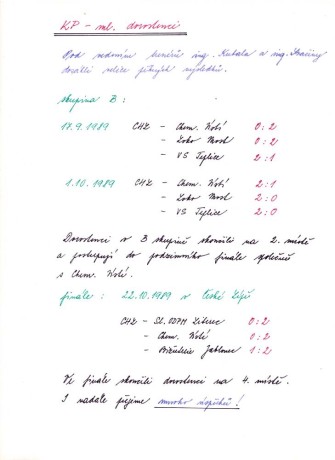 KP - ml. dorostenci
Pod vedením trenérů ing. Kubala a ing.
dosáhli velice pěkných výsledků.
skupina B :
17.9.1989 CHZ - Chem. Ústí 0 : 2
- Loko Most 0 : 2
- VS Teplice 2 : 1
1.10.1989 CHZ - Chem. Ústí 2 : 1
- Loko Most 2 : 0
- VS Teplice 2 : 0
Dorostenci v B skupině skončili na 2. místě
a postupují do podzimního finále společně
s Chem. Ústí.
finále : 22.10.1989 v České Lípě
CHZ - Sl. ODPM Liberec 0 : 2
- Chem. Ústí 0 : 2
- Bižuterie Jablonec 1 : 2
Ve finále skončili dorostenci na 4. místě.
I nadále přejeme mnoho úspěchů !